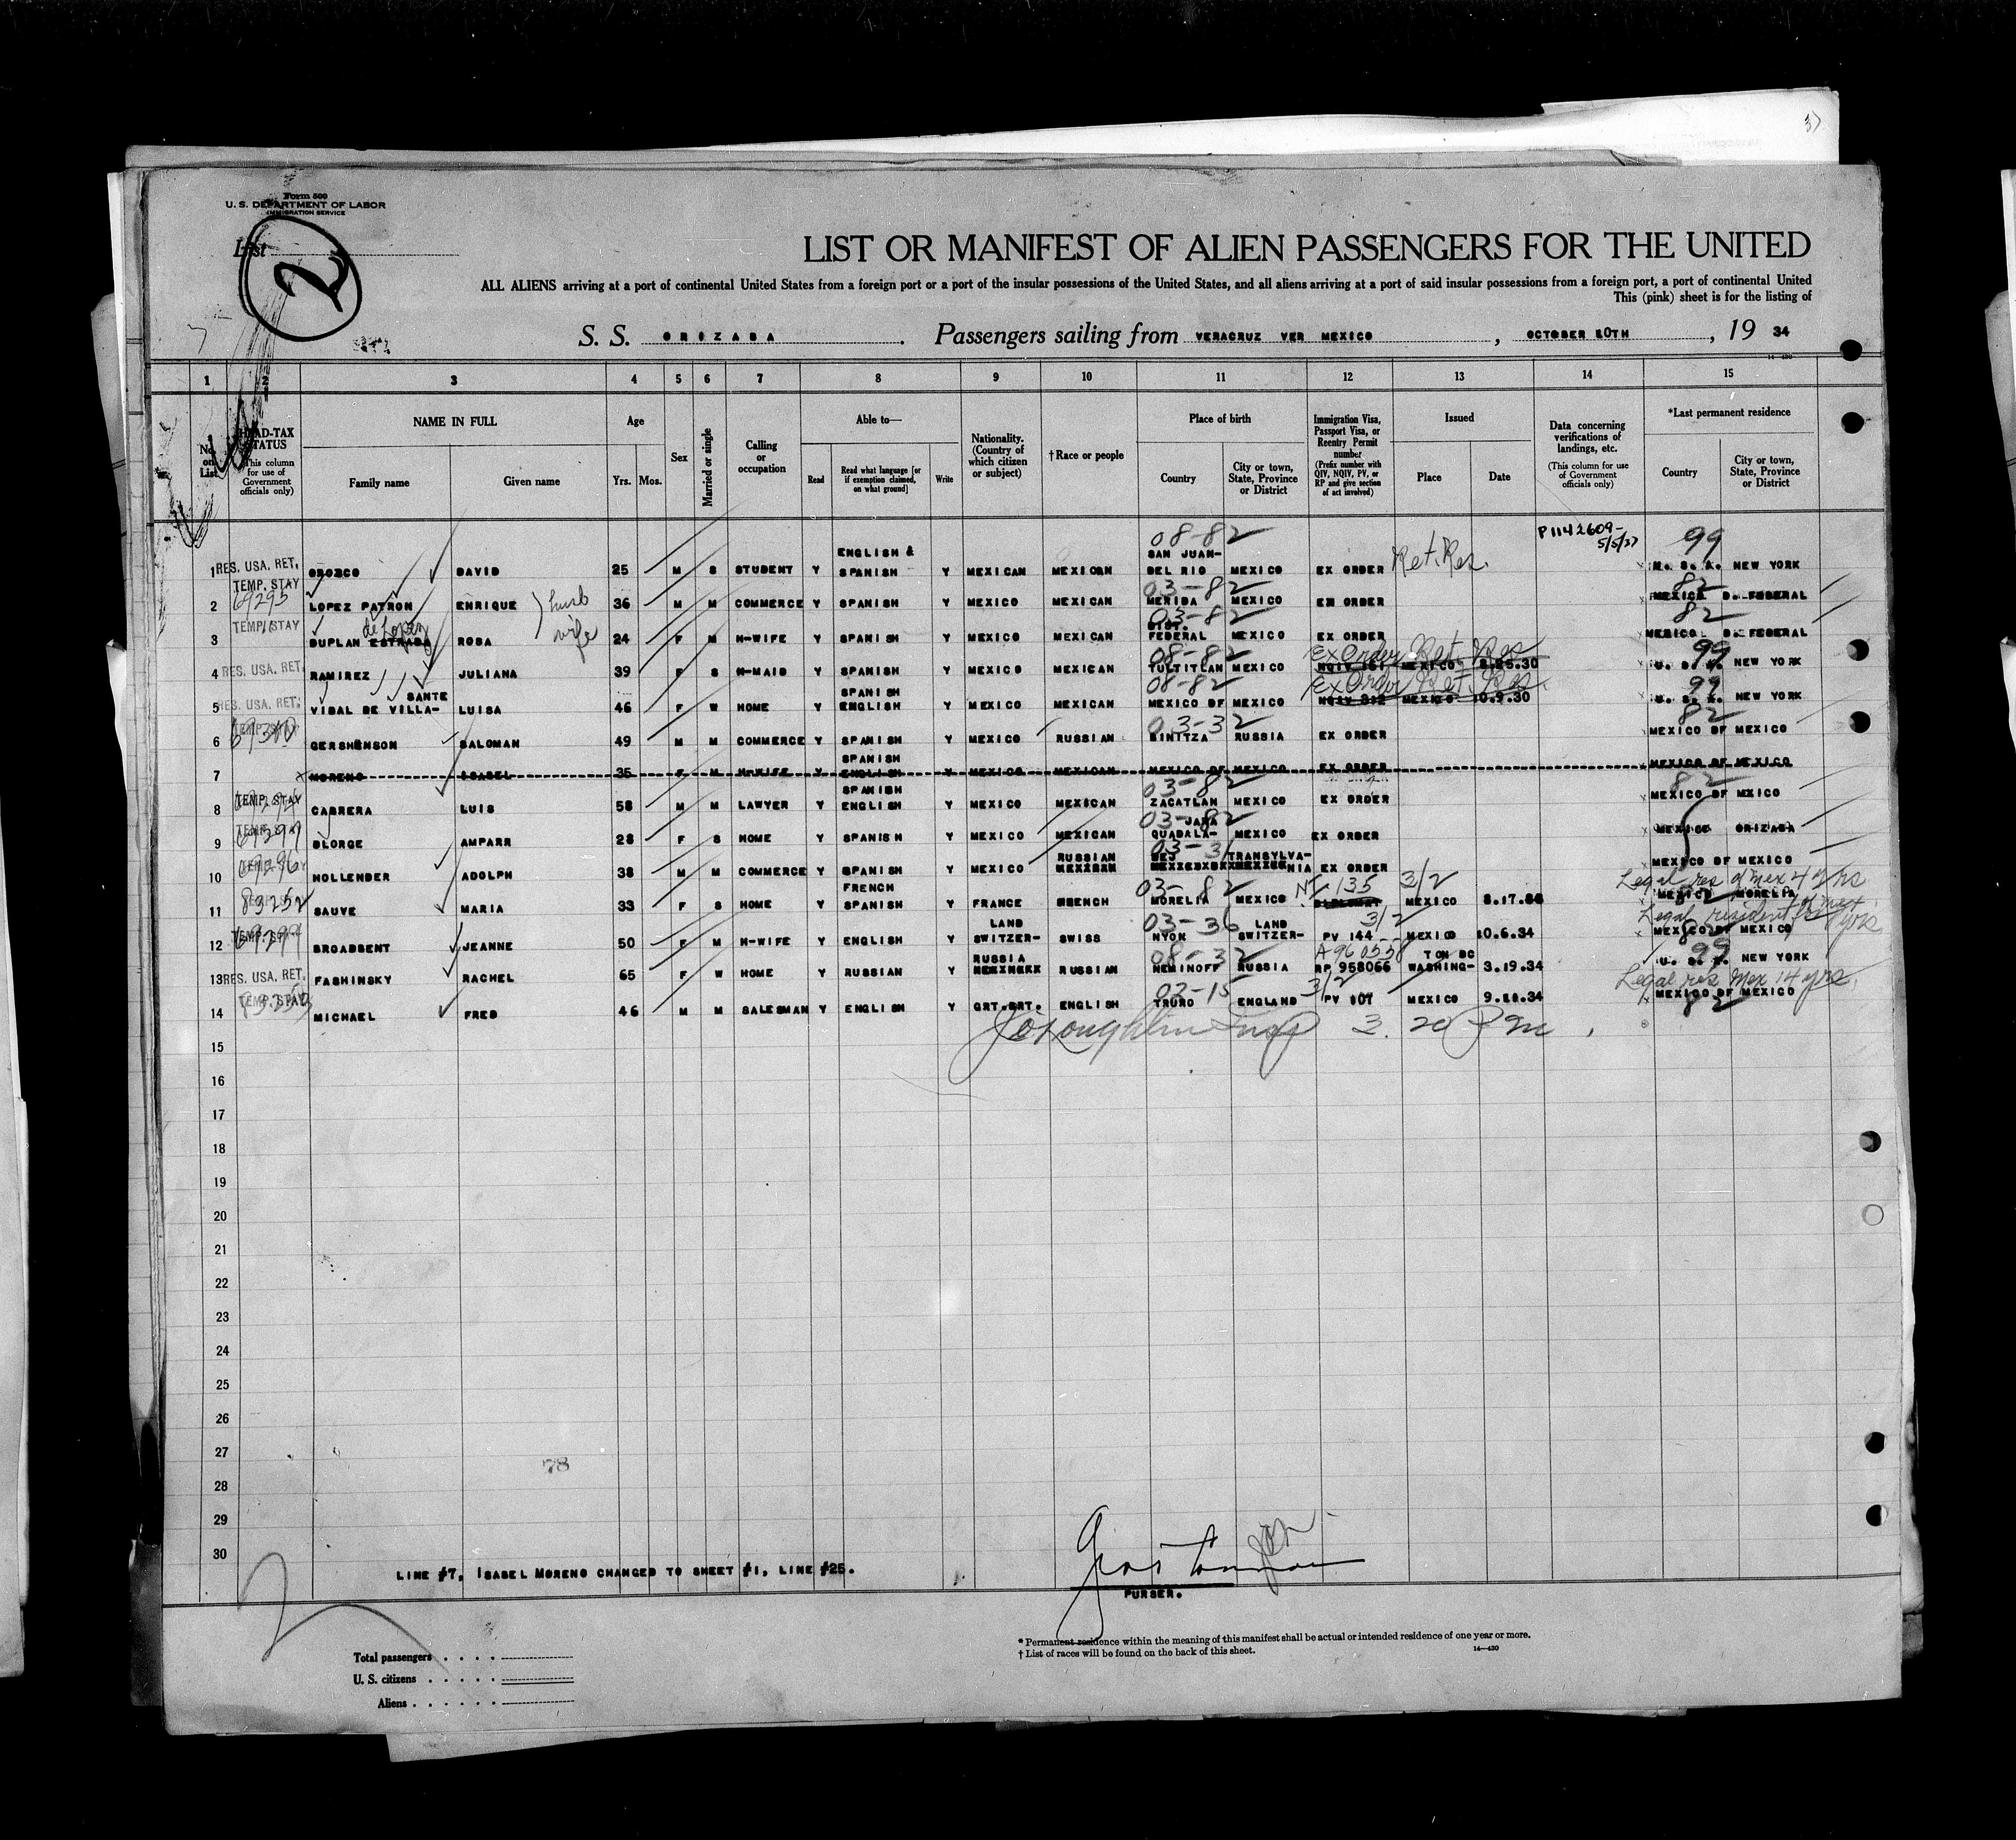 37
Form 500
U. S. DEPARTMENT OF LABOR
IMMIGRATION SERVICE
List
2
LIST OR MANIFEST OF ALIEN PASSENGERS FOR THE UNITED
ALL ALIENS arriving at a port of continental United States from a foreign port or a port of the insular possessions of the United States, and all aliens arriving at a port of said insular possessions from a foreign port, a port of continental United
This (pink) sheet is for the listing of
S. S. ORIZABA. Passengers sailing from VERACRUZ VER MEXICO, OCTOBER 10TH, 19 34
14—430
1 2 3 4 5 6 7 8 9 10 11 12 13 14 15
No. on List
HEAD-TAX STATUS (This column for use of Government officials only)
NAME IN FULL Family name Given name
Age Yrs. Mos.
Sex
Married or single
Calling or occupation
Able to— Read Read what language [or if exemption claimed, on what ground] Write
Nationality. (Country of which citizen or subject)
†Race or people
Place of birth Country City or town, State, Province or District
Immigration Visa, Passport Visa, or Reentry Permit number (Prefix number with QIV, NQIV, PV, or RP and give section of act involved)
Issued Place Date
Data concerning verifications of landings, etc. (This column for use of Government officials only)
*Last permanent residence Country City or town, State, Province or District
08-82 P1142609- 5/5/37 99
ENGLISH & SAN JUAN-
1 RES. USA. RET. OROZCO DAVID 25 M S STUDENT Y SPANISH Y MEXICAN MEXICAN DEL RIO MEXICO EX ORDER Ret. Res. U. S. A. NEW YORK
TEMP. STAY 03-82 82
2 69295 LOPEZ PATRON ENRIQUE husb 36 M M COMMERCE Y SPANISH Y MEXICO MEXICAN MERIDA MEXICO EX ORDER MEXICO D. FEDERAL
TEMP. STAY de Lopez 03-82 DIST. 82
3 DUPLAN ESTRADA ROSA wife 24 F M H-WIFE Y SPANISH Y MEXICO MEXICAN FEDERAL MEXICO EX ORDER MEXICO D. FEDERAL
08-82 Ex Order Ret. Res 99
4 RES. USA. RET. RAMIREZ JULIANA 39 F S H-MAID Y SPANISH Y MEXICO MEXICAN TULTITLAN MEXICO NQIV MEXICO U. S. A. NEW YORK
SANTE SPANISH 08-82 Ex Order Ret. Res. 99
5 RES. USA. RET. VIDAL DE VILLA- LUISA 46 F W HOME Y ENGLISH Y MEXICO MEXICAN MEXICO DF MEXICO NQIV 812 MEXICO 10.9.30 U. S. A. NEW YORK
03-32 82
6 GERSHENSON SALOMAN 49 M M COMMERCE Y SPANISH Y MEXICO RUSSIAN BINITZA RUSSIA EX ORDER MEXICO DF MEXICO
SPANISH
7 MORENO ISABEL 35 F M H-WIFE Y ENGLISH Y MEXICO MEXICAN MEXICO DF MEXICO EX ORDER MEXICO DF MEXICO
TEMP. STAY SPANISH 03-82 82
8 CABRERA LUIS 58 M M LAWYER Y ENGLISH Y MEXICO MEXICAN ZACATLAN MEXICO EX ORDER MEXICO DF MXICO
03-82 JARA
9 DLORGE AMPARR 28 F S HOME Y SPANISH Y MEXICO MEXICAN GUADALA- MEXICO EX ORDER MEXICO ORIZABA
RUSSIAN 03-31 DEJ TRANSYLVA-
10 HOLLENDER ADOLPH 38 M M COMMERCE Y SPANISH Y MEXICO MEXICAN NIA EX ORDER MEXICO DF MEXICO
FRENCH 03-82 NI 135 3/2 Legal res of mex 4 yrs
11 83252 SAUVE MARIA 33 F S HOME Y SPANISH Y FRANCE FRENCH MORELIA MEXICO DIPLOMAT MEXICO MEXICO MORELIA
LAND 03-36 LAND 3/2 Legal resident of mex yrs
12 BROADBENT JEANNE 50 F M H-WIFE Y ENGLISH Y SWITZER- SWISS NYON SWITZER- PV 144 MEXICO 10.6.34 MEXICO DF MEXICO
RUSSIA 08-32 TON DC 99
13 RES. USA. RET. FASHINSKY RACHEL 65 F W HOME Y RUSSIAN Y RUSSIAN NEMINOFF RUSSIA RP 958066 WASHING- 3.19.34 U. S. A. NEW YORK
02-15 3/2 Legal res Mex 14 yrs.
14 MICHAEL FRED 46 M M SALESMAN Y ENGLISH Y GRT.BRT. ENGLISH TRURO ENGLAND PV 107 MEXICO MEXICO DF MEXICO
82
15
16
17
18
19
20
21
22
23
24
25
26
27
78
28
29
30
LINE #7, ISABEL MORENO CHANGED TO SHEET #1, LINE #25.
PURSER.
2
Total passengers
U. S. citizens
Aliens
* Permanent residence within the meaning of this manifest shall be actual or intended residence of one year or more.
† List of races will be found on the back of this sheet.
14—430